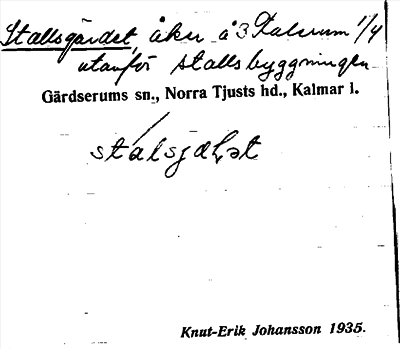 Stallsgärdet, åker å 3 Kalerum 1/4
utanför stallsbyggningen
Gärdserums sn., Norra Tjusts hd., Kalmar l.
Knut-Erik Johansson 1935.